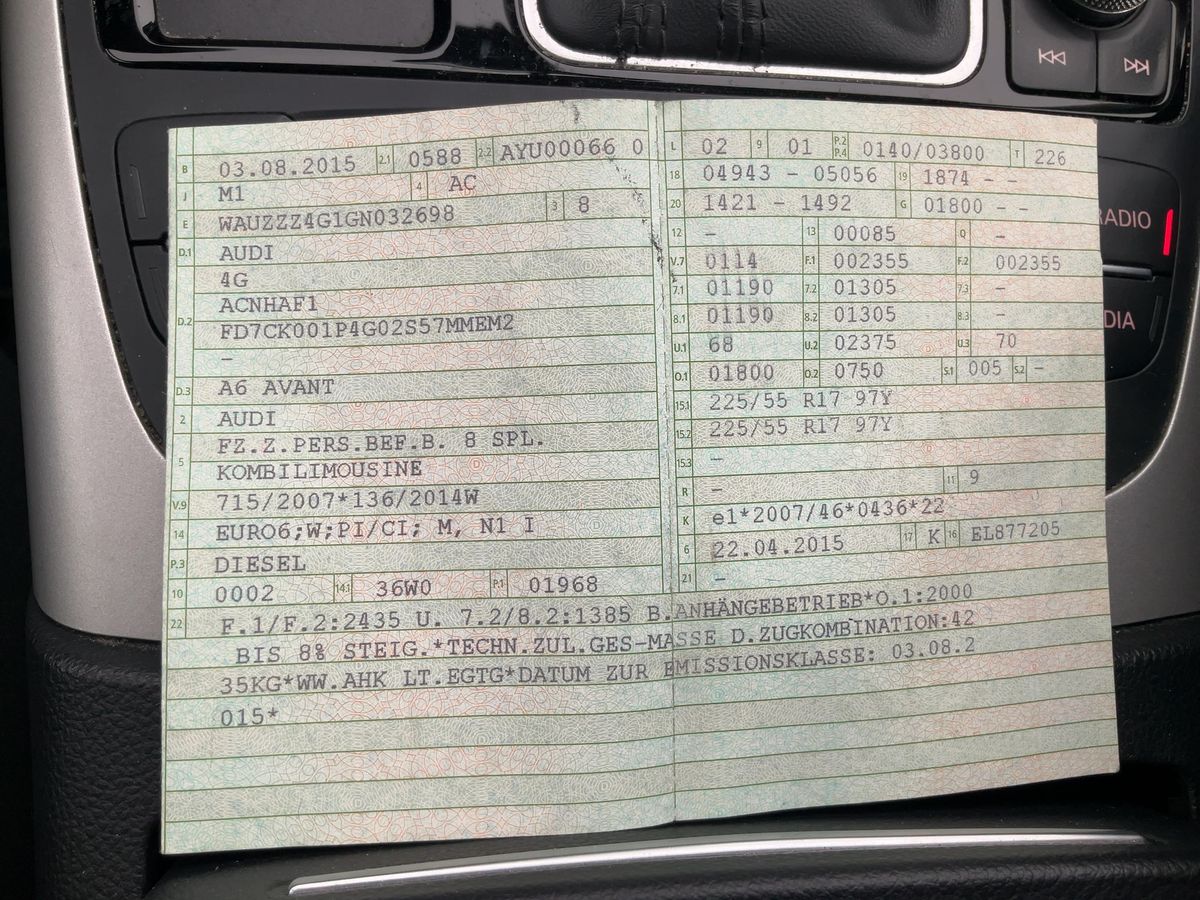 B 03.08.2015 2.1 0588 2.2 AYU00066 0
J M1 4 AC
E WAUZZZ4G1GN032698 3 8
D.1 AUDI
4G
D.2 ACNHAF1
FD7CK001P4G02S57MMEM2
–
D.3 A6 AVANT
2 AUDI
5 FZ.Z.PERS.BEF.B. 8 SPL.
KOMBILIMOUSINE
V.9 715/2007*136/2014W
14 EURO6;W;PI/CI; M, N1 I
P.3 DIESEL
10 0002 14.1 36W0 P.1 01968
L 02 9 01 P.2 P.4 0140/03800 T 226
18 04943 - 05056 19 1874 - -
20 1421 - 1492 G 01800 - -
12 - 13 00085 Q -
V.7 0114 F.1 002355 F.2 002355
7.1 01190 7.2 01305 7.3 -
8.1 01190 8.2 01305 8.3 -
U.1 68 U.2 02375 U.3 70
O.1 01800 O.2 0750 S.1 005 S.2 -
15.1 225/55 R17 97Y
15.2 225/55 R17 97Y
15.3 -
R - 11 9
K e1*2007/46*0436*22
6 22.04.2015 17 K 16 EL877205
21 -
22 F.1/F.2:2435 U. 7.2/8.2:1385 B.ANHÄNGEBETRIEB*O.1:2000
BIS 8% STEIG.*TECHN.ZUL.GES-MASSE D.ZUGKOMBINATION:42
35KG*WW.AHK LT.EGTG*DATUM ZUR EMISSIONSKLASSE: 03.08.2
015*
RADIO